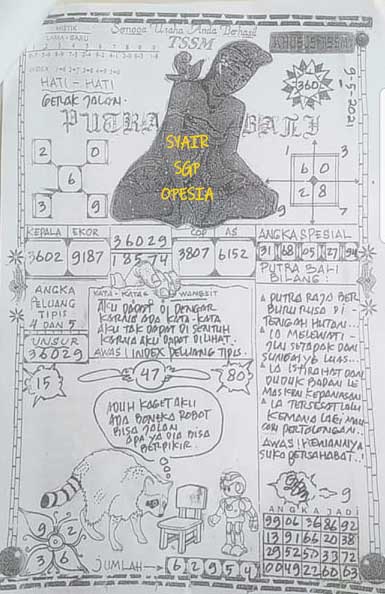 MISTIK
LAMA - BARU
Semoga Usaha Anda Berhasil
TSSM
HATI - HATI
GERAK JALAN
360
9-5-2021
PUTRA BALI
SYAIR
SGP
OPESIA
2 0
6
3 9
1 3
6 0
2 8
9 7
KEPALA EKOR
3602 9187
36029
18574
COP AS
3807 6152
ANGKA SPESIAL
31 68 05 27 94
ANGKA
PELUANG
TIPIS
4 DAN 5
UNSUR
36029
KATA - KATA WANGSIT
AKU DAPAT DI DENGAR
KARNA ADA KATA - KATA
AKU TAK DAPAT DI SENTUH
KARNA AKU DAPAT DILIHAT.
AWAS! INDEX PELUANG TIPIS.
PUTRA BALI
BILANG :
PUTRA RAJA BER
BURU RUSA DI -
TENGAH HUTAN...
IA MELEWATI -
JLN SETAPAK DAN
SUNGAI YG LUAS...
IA ISTIRAHAT DAN
DUDUK BADAN LE
MAS KEN KEPANASAN
IA TERSESAT LALU
KEMANA LAGI MAU
CARI PERTOLONGAN...
AWAS! HEWANNYA
SUKA BERSAHABAT..!
15 47 80
ADUH KAGET AKU
ADA BONEKA ROBOT
BISA JALAN
APA YA DIA BISA
BERPIKIR.
9
9 2
3 6
JUMLAH
6 2 9 5 4
ANGKA JADI
99 06 36 86 92
13 91 66 20 38
29 52 50 33 72
00 49 22 60 63